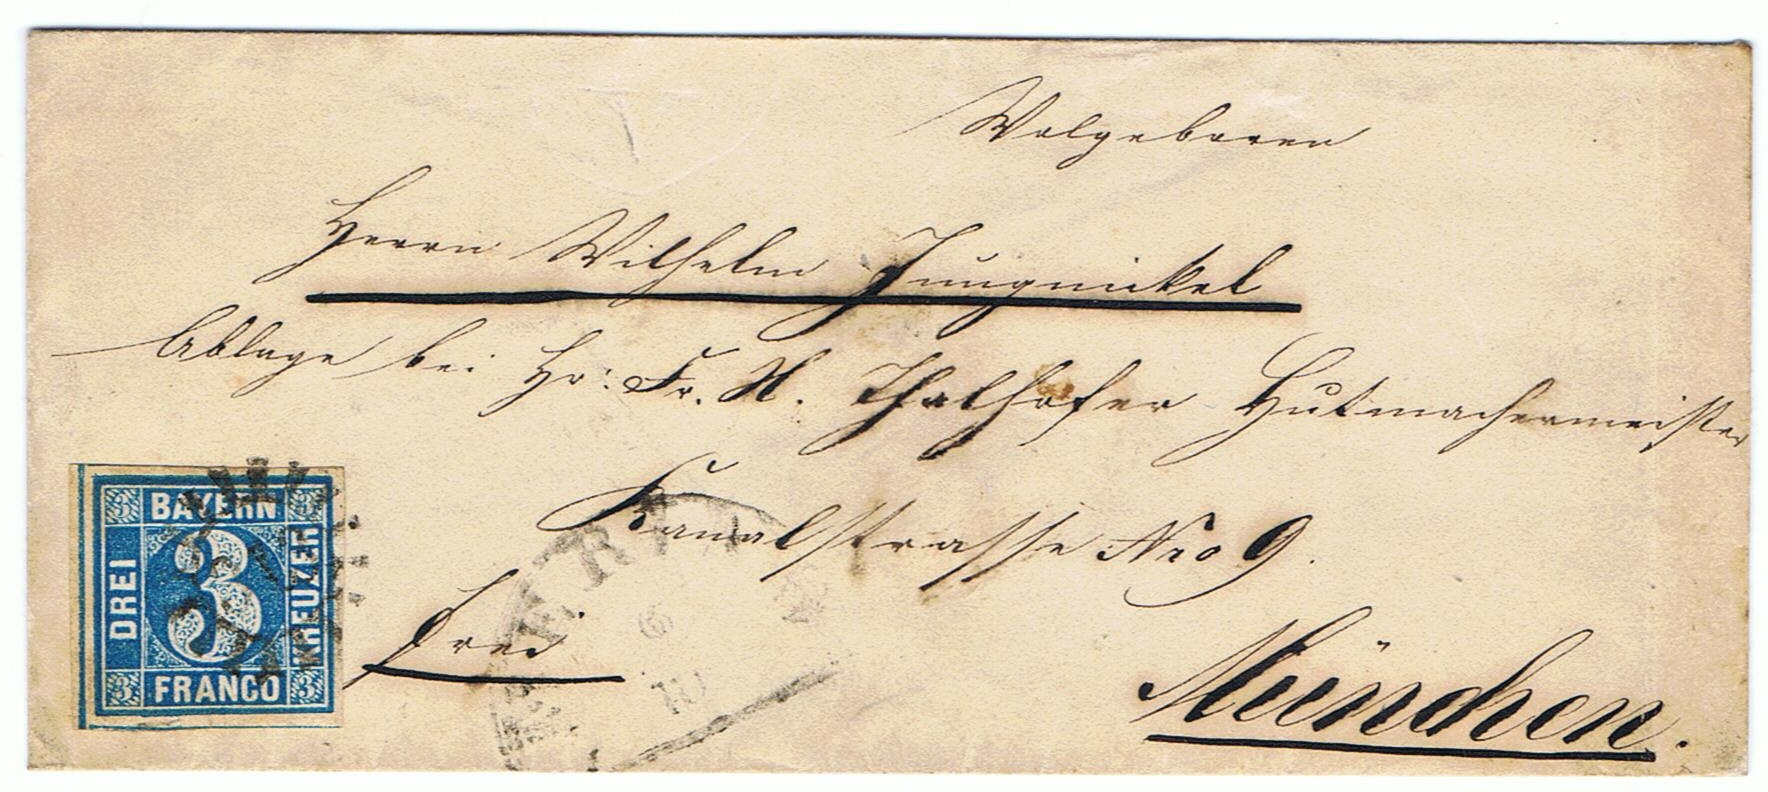 Wolgeboren
Herrn Wilhelm Jungnickel
Ablage bei Hr: Fr. X. Thalhofer Hutmachermeister
Kanalstrasse Nro 9.
frei
München.
BAYERN
DREI
3
KREUZER
FRANCO
3
3
3
3
6
10